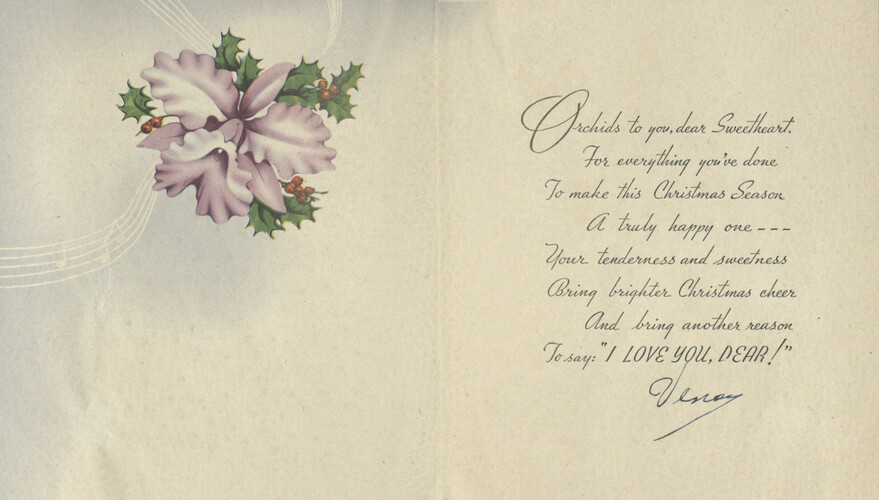 Orchids to you, dear Sweetheart.
For everything you've done
To make this Christmas Season
A truly happy one ---
Your tenderness and sweetness
Bring brighter Christmas cheer
And bring another reason
To say: "I LOVE YOU, DEAR!"